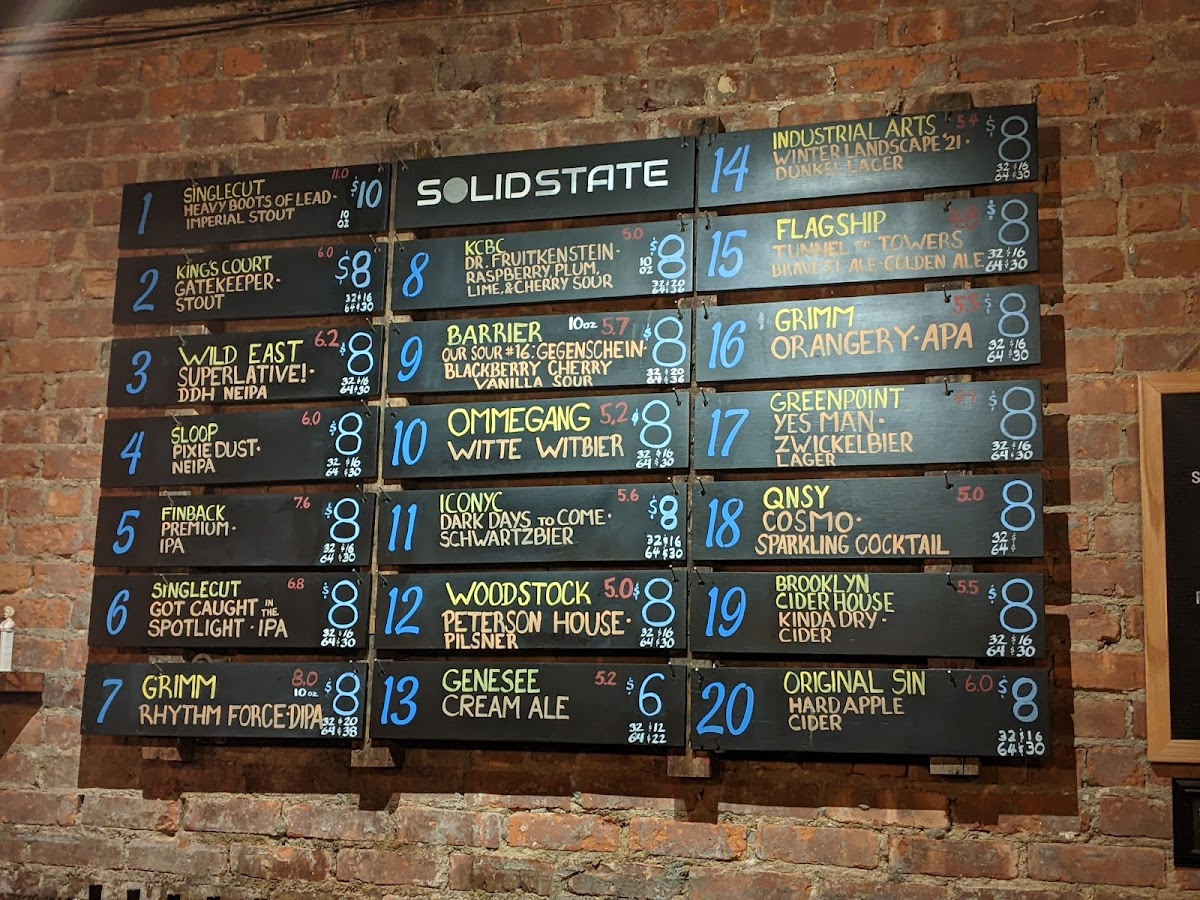 SOLID STATE
1 SINGLECUT 11.0 $10
HEAVY BOOTS OF LEAD ·
IMPERIAL STOUT 10 OZ
2 KING'S COURT 6.0 $8
GATEKEEPER ·
STOUT 32 $16
64 $30
3 WILD EAST 6.2 $8
SUPERLATIVE! ·
DDH NEIPA 32 $16
64 $30
4 SLOOP 6.0 $8
PIXIE DUST ·
NEIPA 32 $16
64 $30
5 FINBACK 7.6 $8
PREMIUM ·
IPA 32 $16
64 $30
6 SINGLECUT 6.8 $8
GOT CAUGHT IN THE
SPOTLIGHT · IPA 32 $16
64 $30
7 GRIMM 8.0 $8
10 OZ
RHYTHM FORCE · DIPA 32 $20
64 $38
8 KCBC 5.0 $8
DR. FRUITKENSTEIN · 10 OZ
RASPBERRY, PLUM,
LIME, & CHERRY SOUR 32 $20
64 $38
9 BARRIER 10 oz 5.7 $8
OUR SOUR #16: GEGENSCHEIN ·
BLACKBERRY CHERRY 32 $20
VANILLA SOUR 64 $36
10 OMMEGANG 5.2 $8
WITTE WITBIER 32 $16
64 $30
11 ICONYC 5.6 $8
DARK DAYS TO COME ·
SCHWARTZBIER 32 $16
64 $30
12 WOODSTOCK 5.0 $8
PETERSON HOUSE ·
PILSNER 32 $16
64 $30
13 GENESEE 5.2 $6
CREAM ALE 32 $12
64 $22
14 INDUSTRIAL ARTS 5.4 $8
WINTER LANDSCAPE '21 ·
DUNKEL LAGER 32 $16
64 $30
15 FLAGSHIP $8
TUNNEL TO TOWERS
BRAVEST ALE · GOLDEN ALE 32 $16
64 $30
16 GRIMM 5.5 $8
ORANGERY · APA 32 $16
64 $30
17 GREENPOINT $8
YES MAN ·
ZWICKELBIER 32 $16
LAGER 64 $30
18 QNSY 5.0 $8
COSMO ·
SPARKLING COCKTAIL 32 $
64 $
19 BROOKLYN 5.5 $8
CIDER HOUSE
KINDA DRY ·
CIDER 32 $16
64 $30
20 ORIGINAL SIN 6.0 $8
HARD APPLE
CIDER 32 $16
64 $30